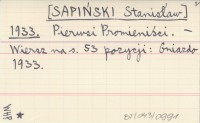 [SAPIŃSKI Stanisław]
1933. Pierwsi Promieniści. –
Wiersz na s. 53 pozycji: Gniazdo
1933.